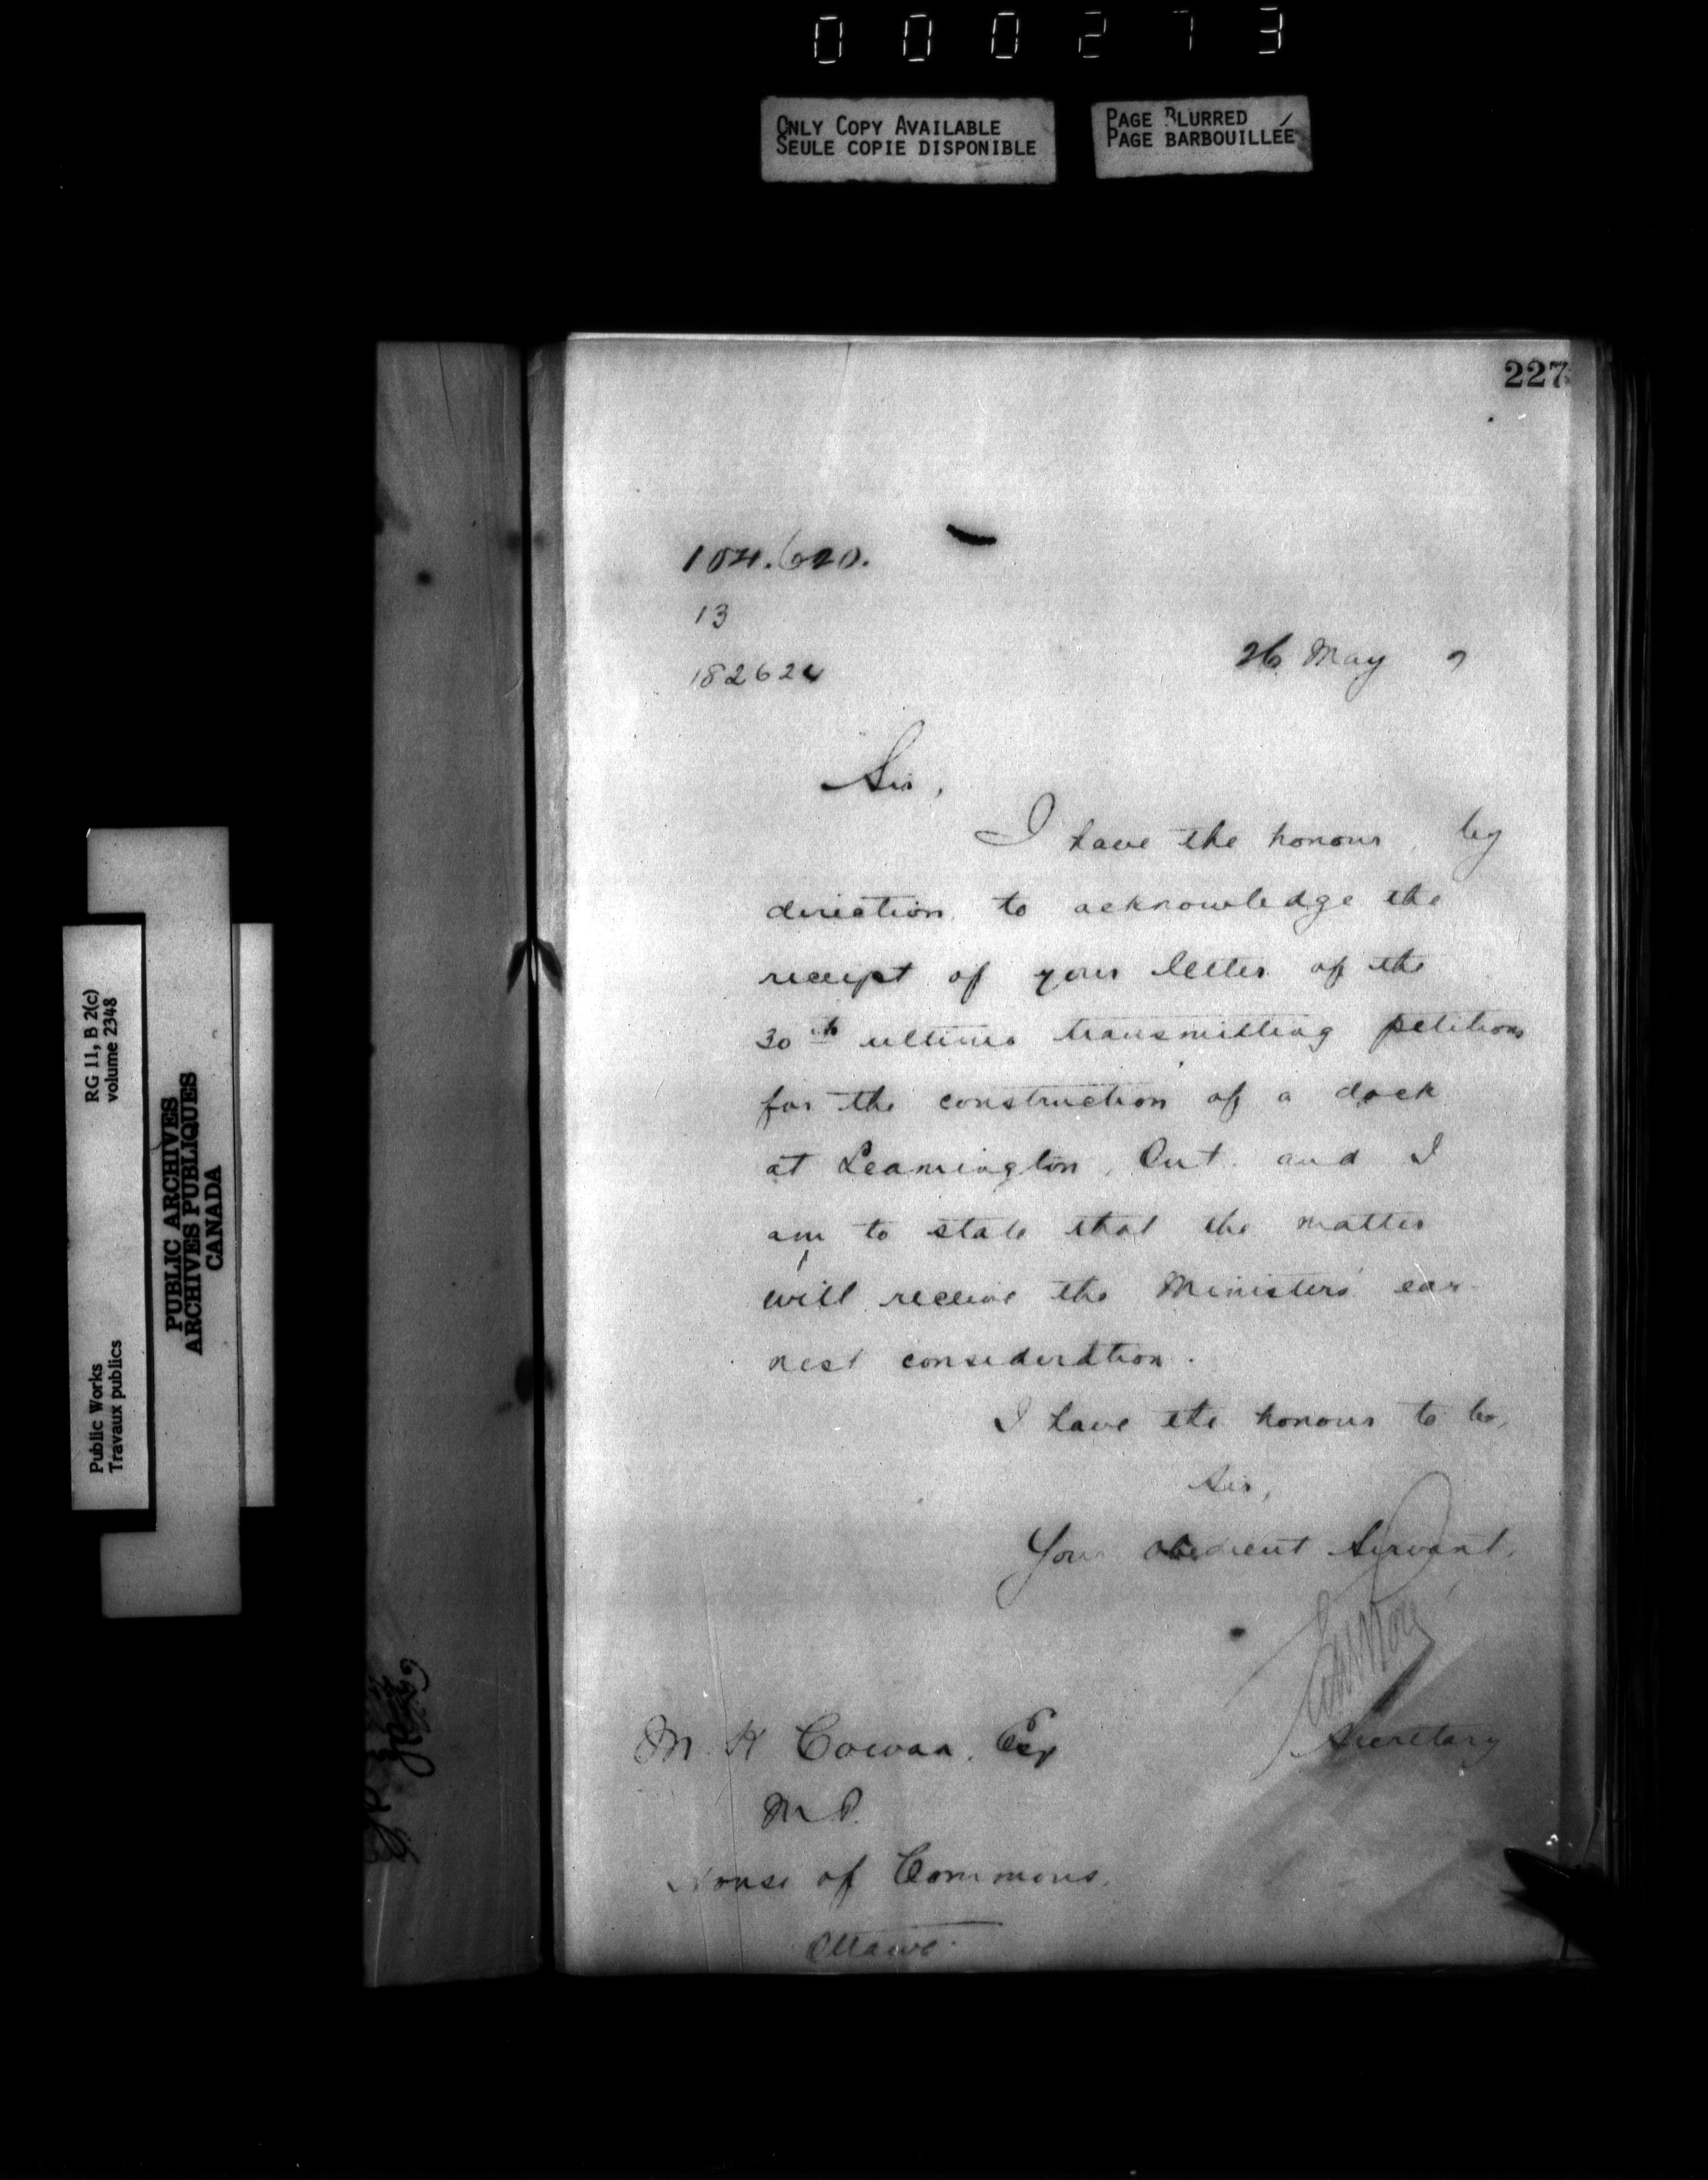 000273
ONLY COPY AVAILABLE
SEULE COPIE DISPONIBLE
PAGE BLURRED
PAGE BARBOUILLÉE
227
13
26 May 7
Sir,
I have the honour, by
direction, to acknowledge the
receipt of your letter of the
30th ultimo transmitting petitions
for the construction of a dock
at Leamington, Ont. and I
am to state that the matter
will receive the Minister's ear-
nest consideration.
I have the honour to be,
Sir,
Your obedient Servant,
Secretary
M K Cowan, Esq
M.P.
House of Commons,
Ottawa.
RG 11, B 2(c)
volume 2348
Public Works
Travaux publics
PUBLIC ARCHIVES
ARCHIVES PUBLIQUES
CANADA